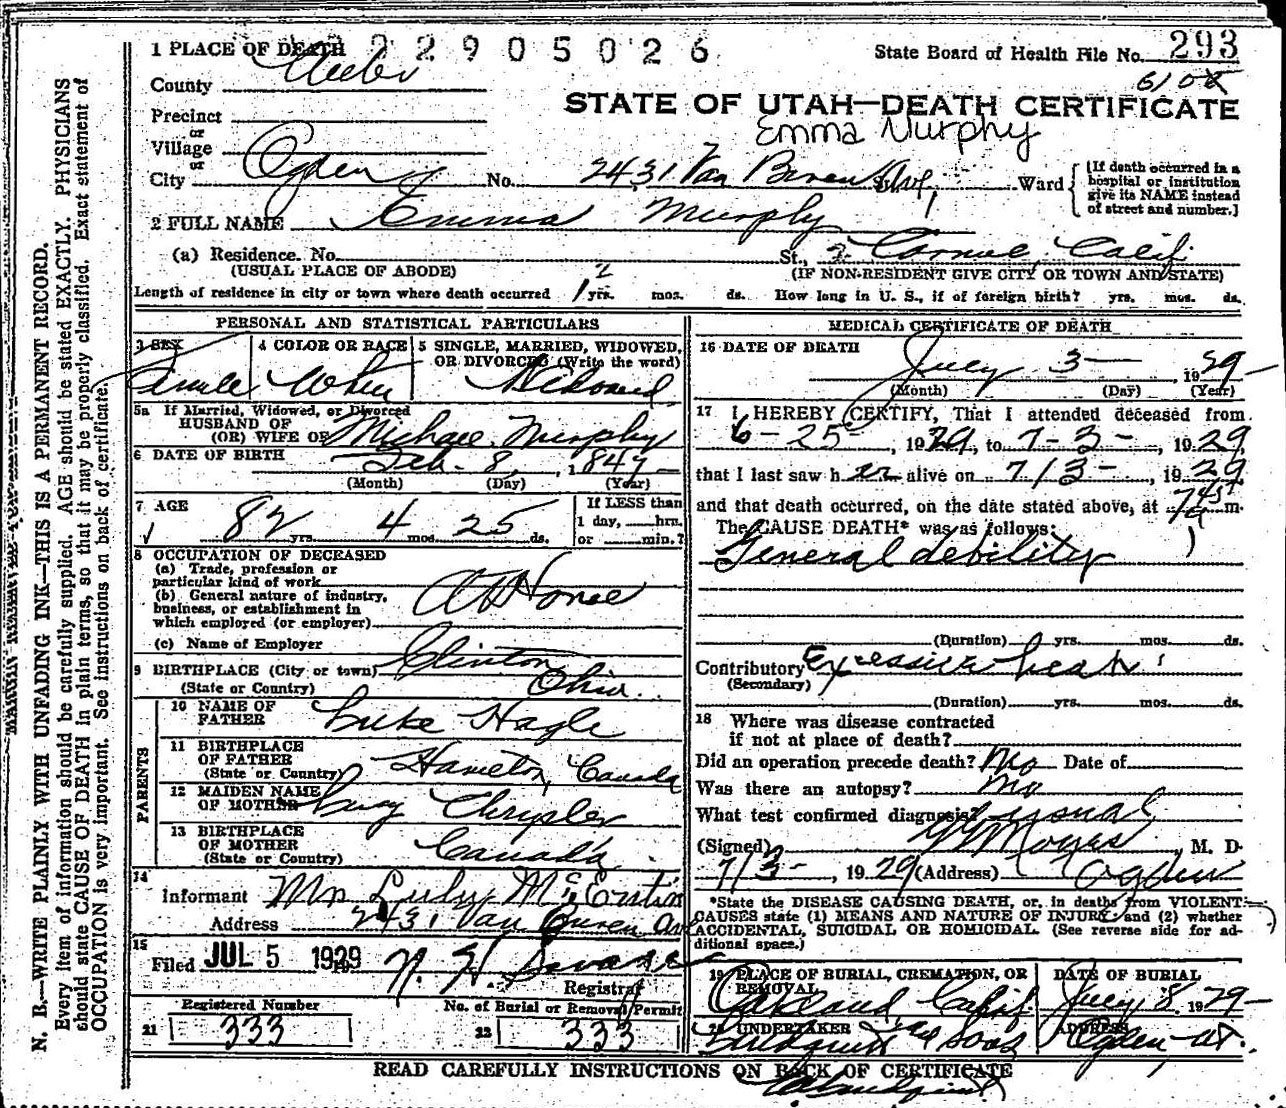 1 PLACE OF DEATH
2 2 9 0 5 0 2 6
State Board of Health File No. 293
County Weber
6108
STATE OF UTAH—DEATH CERTIFICATE
Precinct
or
Emma Murphy
Village
or
City Ogden No. 2431 Van Buren Ave, St., Ward
[If death occurred in a hospital or institution give its NAME instead of street and number.]
2 FULL NAME Emma Murphy
(a) Residence. No. St., Calif
(USUAL PLACE OF ABODE) (IF NON-RESIDENT GIVE CITY OR TOWN AND STATE)
Length of residence in city or town where death occurred yrs. mos. ds. How long in U. S., if of foreign birth? yrs. mos. ds.
PERSONAL AND STATISTICAL PARTICULARS
3 SEX Female
4 COLOR OR RACE White
5 SINGLE, MARRIED, WIDOWED, OR DIVORCED (Write the word) Widowed
5a If Married, Widowed, or Divorced
HUSBAND OF
(OR) WIFE OF Michael Murphy
6 DATE OF BIRTH Feb. 8, 1847
(Month) (Day) (Year)
7 AGE 82 yrs. 4 mos. 25 ds.
If LESS than
1 day, hrs.
or min.?
8 OCCUPATION OF DECEASED
(a) Trade, profession or
particular kind of work
(b) General nature of industry,
business, or establishment in
which employed (or employer)
At Home
(c) Name of Employer
9 BIRTHPLACE (City or town) Clinton
(State or Country) Ohio
PARENTS
10 NAME OF FATHER Luke Hagle
11 BIRTHPLACE OF FATHER (State or Country) Hamelton, Canada
12 MAIDEN NAME OF MOTHER Lucy Chrysler
13 BIRTHPLACE OF MOTHER (State or Country) Canada
14
Informant Mrs
Address 2431 Van Buren Ave
15
Filed JUL 5 1929 N. H.
Registrar
Registered Number
21 333
No. of Burial or Removal Permit
22 333
MEDICAL CERTIFICATE OF DEATH
16 DATE OF DEATH July 3 1929
(Month) (Day) (Year)
17 I HEREBY CERTIFY, That I attended deceased from
6-25, 1929, to 7-3-, 1929
that I last saw her alive on 7/3-, 1929
and that death occurred, on the date stated above, at 7 45 m.
The CAUSE DEATH* was as follows:
General debility
(Duration) yrs. mos. ds.
Contributory Excessive heat
(Secondary)
(Duration) yrs. mos. ds.
18 Where was disease contracted
if not at place of death?
Did an operation precede death? No Date of
Was there an autopsy? No
What test confirmed diagnosis?
(Signed) Moyes, M. D.
7/3-, 1929 (Address) Ogden
*State the DISEASE CAUSING DEATH, or, in deaths from VIOLENT
CAUSES state (1) MEANS AND NATURE OF INJURY, and (2) whether
ACCIDENTAL, SUICIDAL OR HOMICIDAL. (See reverse side for ad-
ditional space.)
19 PLACE OF BURIAL, CREMATION, OR REMOVAL
Oakland, Calif
DATE OF BURIAL
July 8 1929
20 UNDERTAKER
Lindquist & Sons
ADDRESS
Ogden, Ut.
READ CAREFULLY INSTRUCTIONS ON BACK OF CERTIFICATE
Lindquist
N. B.—WRITE PLAINLY WITH UNFADING INK—THIS IS A PERMANENT RECORD.
Every item of information should be carefully supplied. AGE should be stated EXACTLY. PHYSICIANS
should state CAUSE OF DEATH in plain terms, so that it may be properly classified. Exact statement of
OCCUPATION is very important. See instructions on back of certificate.